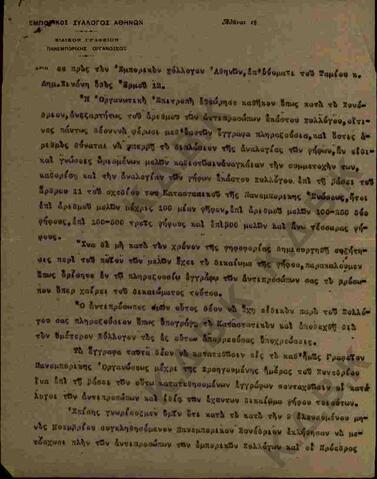 ΕΜΠΟΡΙΚΟΣ ΣΥΛΛΟΓΟΣ ΑΘΗΝΩΝ
Ἀθῆναι τῇ
ΕΙΔΙΚΟΝ ΓΡΑΦΕΙΟΝ
ΠΑΝΕΜΠΟΡΙΚΗΣ ΟΡΓΑΝΩΣΕΩΣ
σε πρὸς τὸν Ἐμπορικὸν Σύλλογον Ἀθηνῶν, ἐπ' ὀνόματι τοῦ Ταμίου κ.
Δημ. Πινάνη ὁδὸς Ἑρμοῦ 12.
Ἡ Ὀργανωτικὴ Ἐπιτροπὴ ἐθεώρησε καθῆκον ὅπως κατὰ τὸ Συνέ-
δριον, ἀνεξαρτήτως τοῦ ἀριθμοῦ τῶν ἀντιπροσώπων ἑκάστου Συλλόγου, οἵτι-
νες πάντως δέον νὰ φέρωσι μεθ' ἑαυτῶν ἔγγραφα πληρεξούσια, καὶ ὅστις ἀ-
ριθμὸς δύναται νὰ ὑπερβῇ τὸ διπλάσιον τῆς ἀναλογίας τῶν ψήφων, ἂν εἰδι-
καὶ γνώσεις ὡρισμένων μελῶν καθιστῶσιν ἀναγκαίαν τὴν συμμετοχήν των,
καθορίσῃ καὶ τὴν ἀναλογίαν τῶν ψήφων ἑκάστου Συλλόγου ἐπὶ τῇ βάσει τοῦ
ἄρθρου 11 τοῦ σχεδίου τοῦ Καταστατικοῦ τῆς Πανεμπορικῆς Ἑνώσεως, ἤτοι
ἐπὶ ἀριθμοῦ μελῶν μέχρις 100 μίαν ψῆφον, ἐπὶ ἀριθμοῦ μελῶν 100-250 δύο
ψήφους, ἐπὶ 100-500 τρεῖς ψήφους καὶ ἐπὶ 500 μελῶν καὶ ἄνω τέσσαρας ψή-
φους.
Ἵνα δὲ μὴ κατὰ τὸν χρόνον τῆς ψηφοφορίας δημιουργηθῇ συζήτη-
σις περὶ τοῦ ποῖον τῶν μελῶν ἔχει τὸ δικαίωμα τῆς ψήφου, παρακαλοῦμεν
ὅπως ὁρίσητε ἐν τῷ πληρεξουσίῳ ἐγγράφῳ τῶν ἀντιπροσώπων σας τὸ πρόσω-
πον ὅπερ χαίρει τοῦ δικαιώματος τούτου.
Ὁ ἀντιπρόσωπος ὑμῶν οὗτος δέον νὰ ἔχῃ εἰδικὴν παρὰ τοῦ Συλλό-
γου σας πληρεξουσίαν ὅπως ὑπογράψῃ τὸ Καταστατικὸν καὶ ἀποδεχθῇ διὰ
τὸν ὑμέτερον Σύλλογον τὰς ἐξ αὐτοῦ ἀπορρεούσας ὑποχρεώσεις.
Τὰ ἔγγραφα ταῦτα δέον νὰ κατατεθῶσιν εἰς τὸ καθ' ἡμᾶς Γραφεῖον
Πανεμπορικῆς Ὀργανώσεως μέχρι τῆς προηγουμένης ἡμέρας τοῦ Συνεδρίου
ἵνα ἐπὶ τῇ βάσει τῶν οὕτω κατατεθησομένων ἐγγράφων συνταχθῶσιν οἱ κατά-
λογοι τῶν ἀντιπροσώπων καὶ ἰδίᾳ τῶν ἐχόντων δικαίωμα ψήφου τοιούτων.
Ἐπίσης γνωρίζομεν ὑμῖν ὅτι κατὰ τὸ κατὰ τὴν 2 ἐλευσομένου μη-
νὸς Νοεμβρίου συγκληθησόμενον Πανεμπορικὸν Συνέδριον ἐκλήθησαν νὰ με-
τάσχωσι πλὴν τῶν ἀντιπροσώπων τῶν ἐμπορικῶν Συλλόγων καὶ οἱ Πρόεδροι